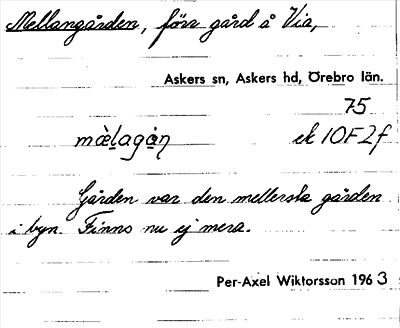 Mellangården, förr gård å Via,
Askers sn, Askers hd, Örebro län.
75
mæ̀lagån̥ ek 10F2f
Gården var den mellersta gården
i byn. Finns nu ej mera.
Per-Axel Wiktorsson 1963